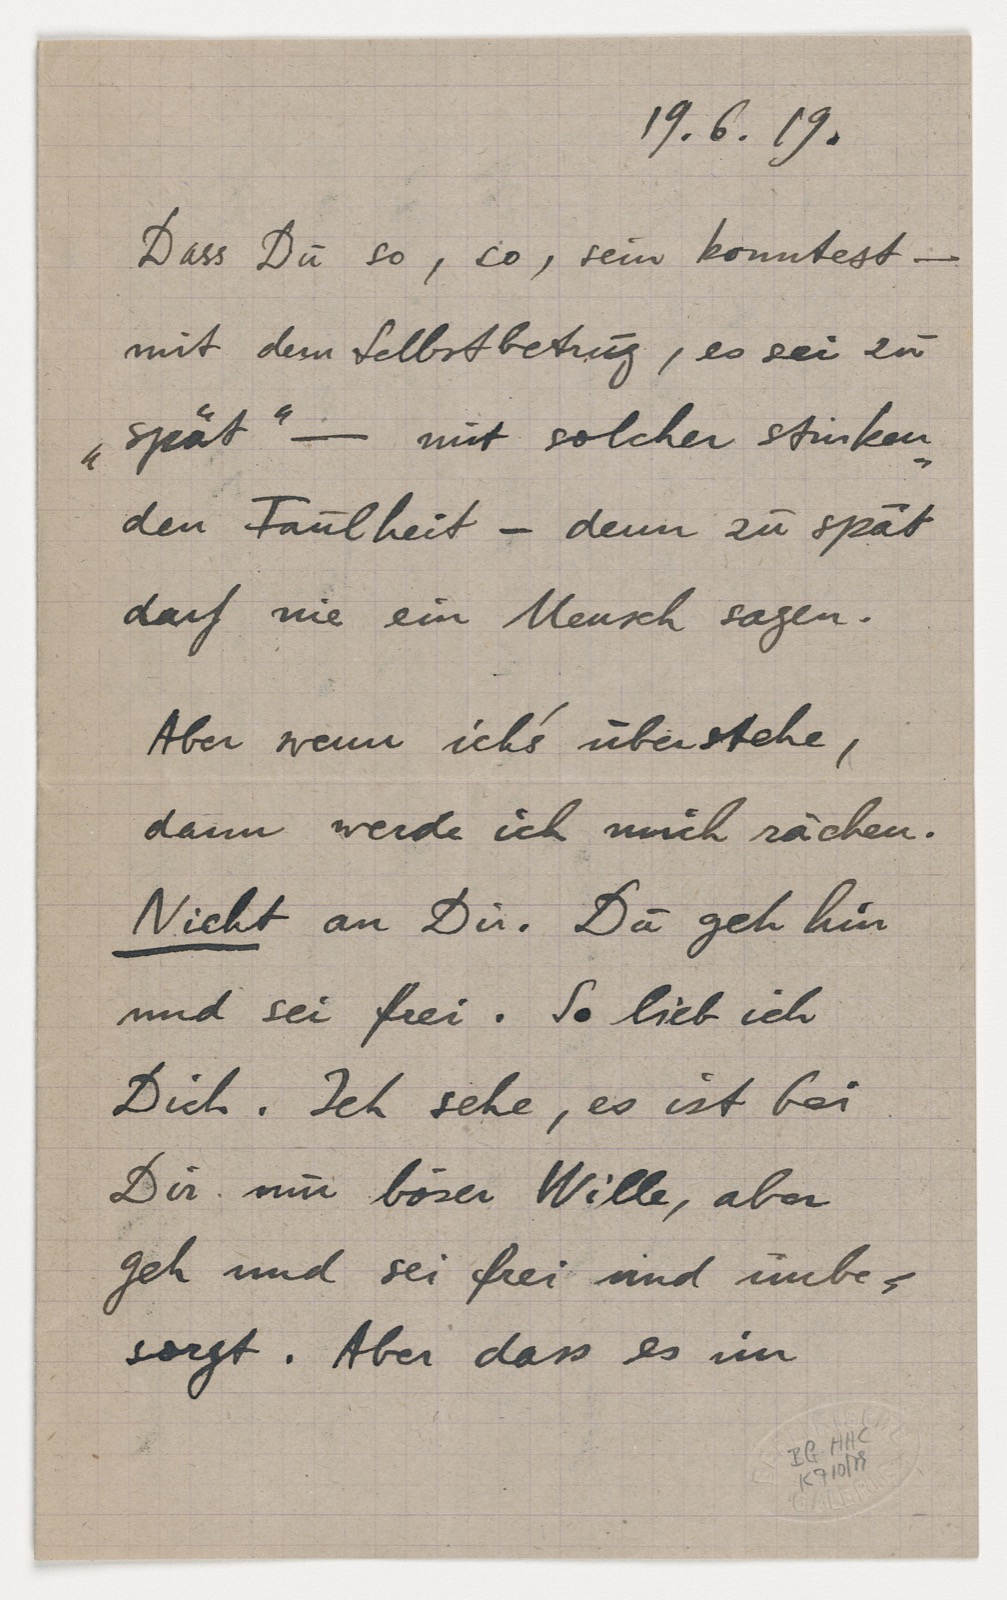 19. 6. 19.
Dass Du so, so, sein konntest —
mit dem Selbstbetrug, es sei zu
„spät“ — mit solcher stinken-
den Faulheit – denn zu spät
darf nie ein Mensch sagen.
Aber wenn ich's überstehe,
dann werde ich mich rächen.
Nicht an Dir. Du geh hin
und sei frei. So lieb ich
Dich. Ich sehe, es ist bei
Dir nur böser Wille, aber
geh und sei frei und unbe-
sorgt. Aber dass es im
BG HHC
K 710/79